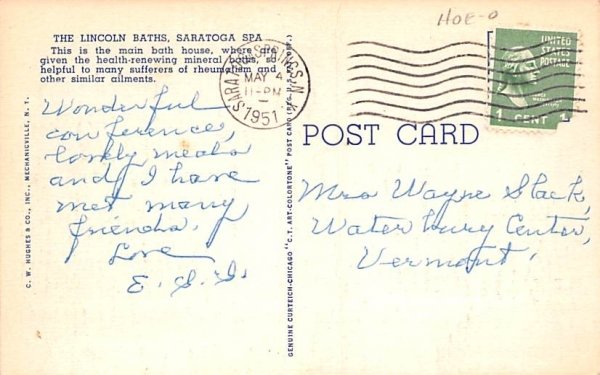 HOE-O
THE LINCOLN BATHS, SARATOGA SPA
This is the main bath house, where are
given the health-renewing mineral baths, so
helpful to many sufferers of rheumatism and
other similar ailments.
SARATOGA SPRINGS, N.Y.
MAY 4
11-PM
1951
UNITED
STATES
POSTAGE
1 CENT 1
Wonderful
conference,
lovely meals
and I have
met many
friends.
Love
E. S. S.
POST CARD
Mrs Wayne Slack,
Waterbury Center,
Vermont.
C. W. HUGHES & CO., INC., MECHANICVILLE, N. Y.
GENUINE CURTEICH-CHICAGO "C.T. ART-COLORTONE" POST CARD (REG. U.S. PAT. OFF.)